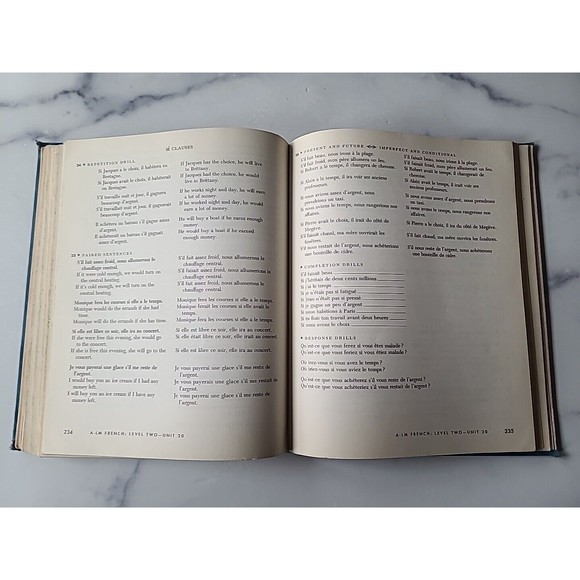 si CLAUSES
24 • REPETITION DRILL
Si Jacques a le choix, il habitera en
Bretagne.
Si Jacques avait le choix, il habiterait
en Bretagne.
S'il travaille nuit et jour, il gagnera
beaucoup d'argent.
S'il travaillait nuit et jour, il gagnerait
beaucoup d'argent.
Il achètera un bateau s'il gagne assez
d'argent.
Il achèterait un bateau s'il gagnait
assez d'argent.
If Jacques has the choice, he will live
in Brittany.
If Jacques had the choice, he would live
in Brittany.
If he works night and day, he will
earn a lot of money.
If he worked night and day, he would
earn a lot of money.
He will buy a boat if he earns enough
money.
He would buy a boat if he earned
enough money.
25 • PAIRED SENTENCES
S'il fait assez froid, nous allumerons le
chauffage central.
If it were cold enough, we would turn on
the central heating.
If it's cold enough, we will turn on the
central heating.
S'il fait assez froid, nous allumerons le
chauffage central.
S'il faisait assez froid, nous allumerions le
chauffage central.
Monique fera les courses si elle a le temps.
Monique would do the errands if she had
time.
Monique will do the errands if she has time.
Monique fera les courses si elle a le temps.
Monique ferait les courses si elle avait le
temps.
Si elle est libre ce soir, elle ira au concert.
If she were free this evening, she would go
to the concert.
If she is free this evening, she will go to the
concert.
Si elle est libre ce soir, elle ira au concert.
Si elle était libre ce soir, elle irait au concert.
Si elle est libre ce soir, elle ira au concert.
Je vous payerai une glace s'il me reste de
l'argent.
I would buy you an ice cream if I had any
money left.
I will buy you an ice cream if I have any
money left.
Je vous payerai une glace s'il me reste de
l'argent.
Je vous payerais une glace s'il me restait de
l'argent.
Je vous payerai une glace s'il me reste de
l'argent.
234
A-LM FRENCH, LEVEL TWO—UNIT 20
PRESENT AND FUTURE IMPERFECT AND CONDITIONAL
S'il fait beau, nous irons à la plage.
S'il fait froid, mon père allumera un feu.
Si Robert a le temps, il changera de
chemise.
Si Alain a le temps, il ira voir ses anciens
professeurs.
Si nous avons assez d'argent, nous
prendrons un taxi.
Si nous avons le temps, nous rangerons nos
affaires.
Si Pierre a le choix, il ira du côté de
Megève.
S'il fait chaud, ma mère ouvrira les
fenêtres.
S'il nous reste de l'argent, nous achèterons
une bouteille de cidre.
S'il faisait beau, nous irions à la plage.
S'il faisait froid, mon père allumerait un feu.
Si Robert avait le temps, il changerait de
chemise.
Si Alain avait le temps, il irait voir ses
anciens professeurs.
Si nous avions assez d'argent, nous
prendrions un taxi.
Si nous avions le temps, nous rangerions nos
affaires.
Si Pierre avait le choix, il irait du côté de
Megève.
S'il faisait chaud, ma mère ouvrirait les
fenêtres.
S'il nous restait de l'argent, nous achèterions
une bouteille de cidre.
COMPLETION DRILLS
S'il faisait beau
Si j'héritais de deux cents millions
Si j'ai le temps
Si je n'étais pas si fatigué
Si Jean n'était pas si pressé
Si j'ai un peu d'argent
Si nous habitions à Paris
Si tu finis ton travail avant deux heures
Si nous avons le choix
RESPONSE DRILLS
Qu'est-ce que vous ferez si vous êtes malade?
Qu'est-ce que vous feriez si vous étiez malade?
Où irez-vous si vous avez le temps?
Où iriez-vous si vous aviez le temps?
Qu'est-ce que vous achèterez s'il vous reste de l'argent?
Qu'est-ce que vous achèteriez s'il vous restait de l'argent?
A-LM FRENCH, LEVEL TWO—UNIT 20
235